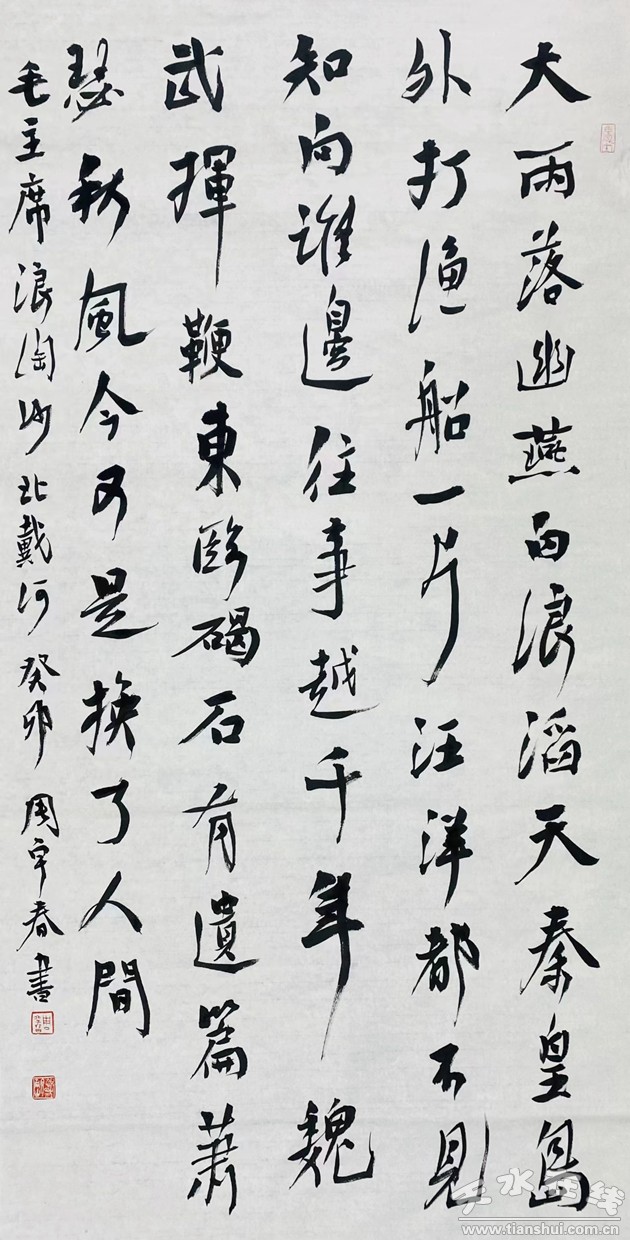 大雨落幽燕白浪滔天秦皇島
外打漁船一片汪洋都不見
知向誰邊往事越千年魏
武揮鞭東臨碣石有遺篇蕭
瑟秋風今又是換了人間
毛主席浪淘沙北戴河癸卯周宇春書
天水在线
www.tianshui.com.cn